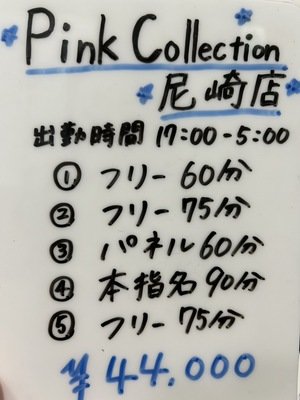 Pink Collection
尼崎店
出勤時間 17:00-5:00
① フリー 60分
② フリー 75分
③ パネル 60分
④ 本指名 90分
⑤ フリー 75分
¥44.000